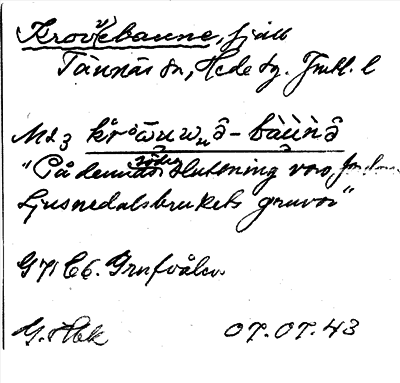 Krovvebaune, fjäll
Tännäs sn, Hede tg. Jmtl. l
Md3 kråωuwuə̂ - bàùǹə̂
"På dennas södra sluttning voro
Ljusnedalsbrukets gruvor"
G71 C6. Grufvålen
G. Hbk 07.07.43